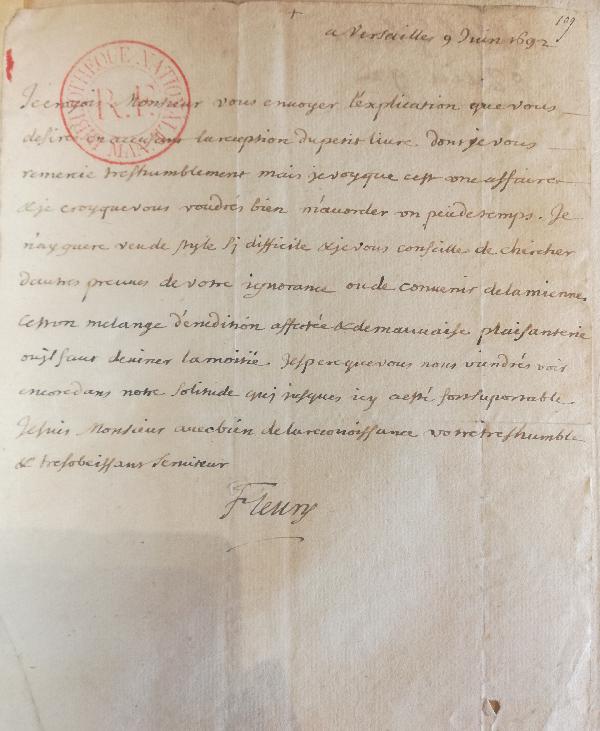 109
a Versailles 9 Juin 1692
Je croyois Monsieur vous envoyer l'explication que vous
desirez en accusant la reception du petit livre dont je vous
remercie treshumblement mais je voy que cest une affaire
& je croy que vous voudrés bien m'accorder un peu de temps. Je
n'ay guere veu de style si difficile & je vous conseille de chercher
d'autres preuves de votre ignorance ou de convenir de la mienne.
Cest un melange d'erudition affectée & de mauvaise plaisanterie
ou il faut deviner la moitié. Jespere que vous nous viendrés voir
encore dans notre solitude qui jusques icy a esté fort suportable.
Je suis Monsieur avec bien de la reconoissance votre treshumble
& tresobeissant serviteur
Fleury
BIBLIOTHEQUE NATIONALE MAN.
R.F.